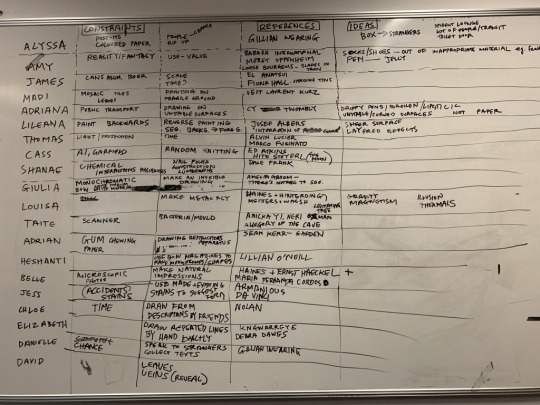 CONSTRAINTS REFERENCES IDEAS
ALYSSA POST-ITS COLOURED PAPER PEOPLE - CHANCE RIP UP GILLIAN WEARING BOX → STRANGERS STUDENT LOUNGE LOT OF PEOPLE/TRANSIT
AMY REALITY/FANTASY USE-VALUE MERET OPPENHEIM LOUISE BOURGEOIS SOCKS/SHOES - OUT OF INAPPROPRIATE MATERIAL eg. PEN - JELLY
JAMES CANS ASUM BEER SCALE TIME? EL ANATSUI FIONA HALL - SARDINE TINS
MADI MOSAIC TILES PAINTING ON FRAGILE GROUND VEIT LAURENT KURZ
ADRIANA PUBLIC TRANSPORT DRAWING ON UNSTABLE SURFACES CY TWOMBLY DRIPPY PENS/BROKEN/LIPSTICK UNSTABLE/CURVED SURFACES NOT PAPER
LILEANA PAINT BACKWARDS REVERSE PAINTING JOSEF ALBERS SHEER SURFACE LAYERED EFFECTS
THOMAS LIGHT/PROJECTION TIME ALVIN LUCIER MARCO FUSINATO
CASS AI, GARFIELD RANDOM KNITTING ED ATKINS HITO STEYERL
SHANAE CHEMICAL INTERACTIONS NAIL POLISH CONSTRUCTION DAVE FRANK
GIULIA MONOCHROMATIC MAKE AN INVISIBLE DRAWING THERE'S NOTHING TO SEE.
LOUISA MAKE METALLY HAINES + HINTERDING GRAVITY MAGNETISM ILLUSION THERMALS
TAITE SCANNER BACTERIA/MOULD ANICKA YI ALLEGORY OF THE CAVE
ADRIAN GUM CHEWING PAPER DRAWING APPARATUS SEAN KERR - GARDEN
HESHANTI USE OWN LILLIAN O'NEILL
BELLE MICROSCOPIC PHOTOS MAKE NATURAL IMPRESSIONS HAINES + ERNST HAECKEL MARIA FERNANDA CARDOSO +
JESS (ACCIDENTS) STAINS USE MADE + EXISTING STAINS TO SUGGEST FORM ARMANIOUS DA VINCI
CHLOE TIME DRAW FROM DESCRIPTIONS BY FRIENDS NOLAN
ELIZABETH DRAW REPEATED LINES BY HAND EXACTLY KNGWARREYE DEBRA DAWES
DANIELLE CHANCE SPEAK TO STRANGERS COLLECT TEXTS GILLIAN WEARING
DAVID LEAVES VEINS (REVEAL)